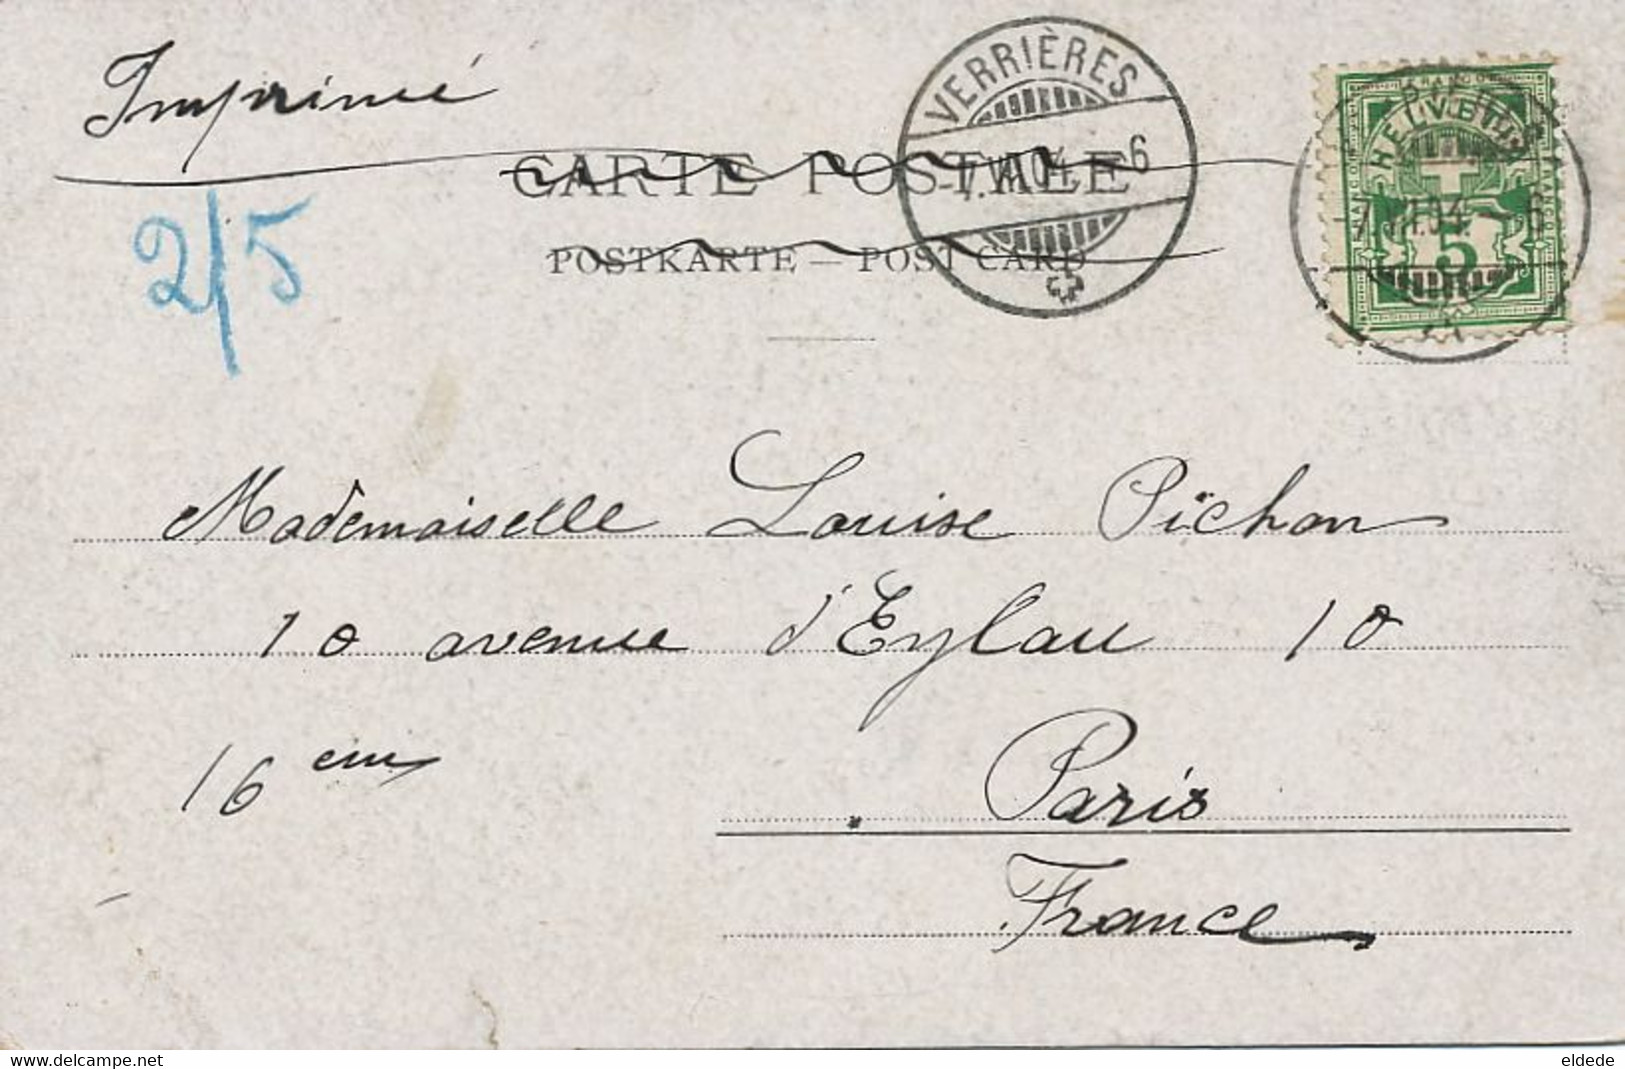 Imprimé
VERRIÈRES
CARTE POSTALE
-7.VII.04.-6
-7.VII.04.-6
HELVETIA
FRANCO
5
2/5
POSTKARTE — POST CARD
Mademoiselle Louise Pichon
10 avenue d'Eylau 10
16 em
Paris
France
www.delcampe.net
eldede